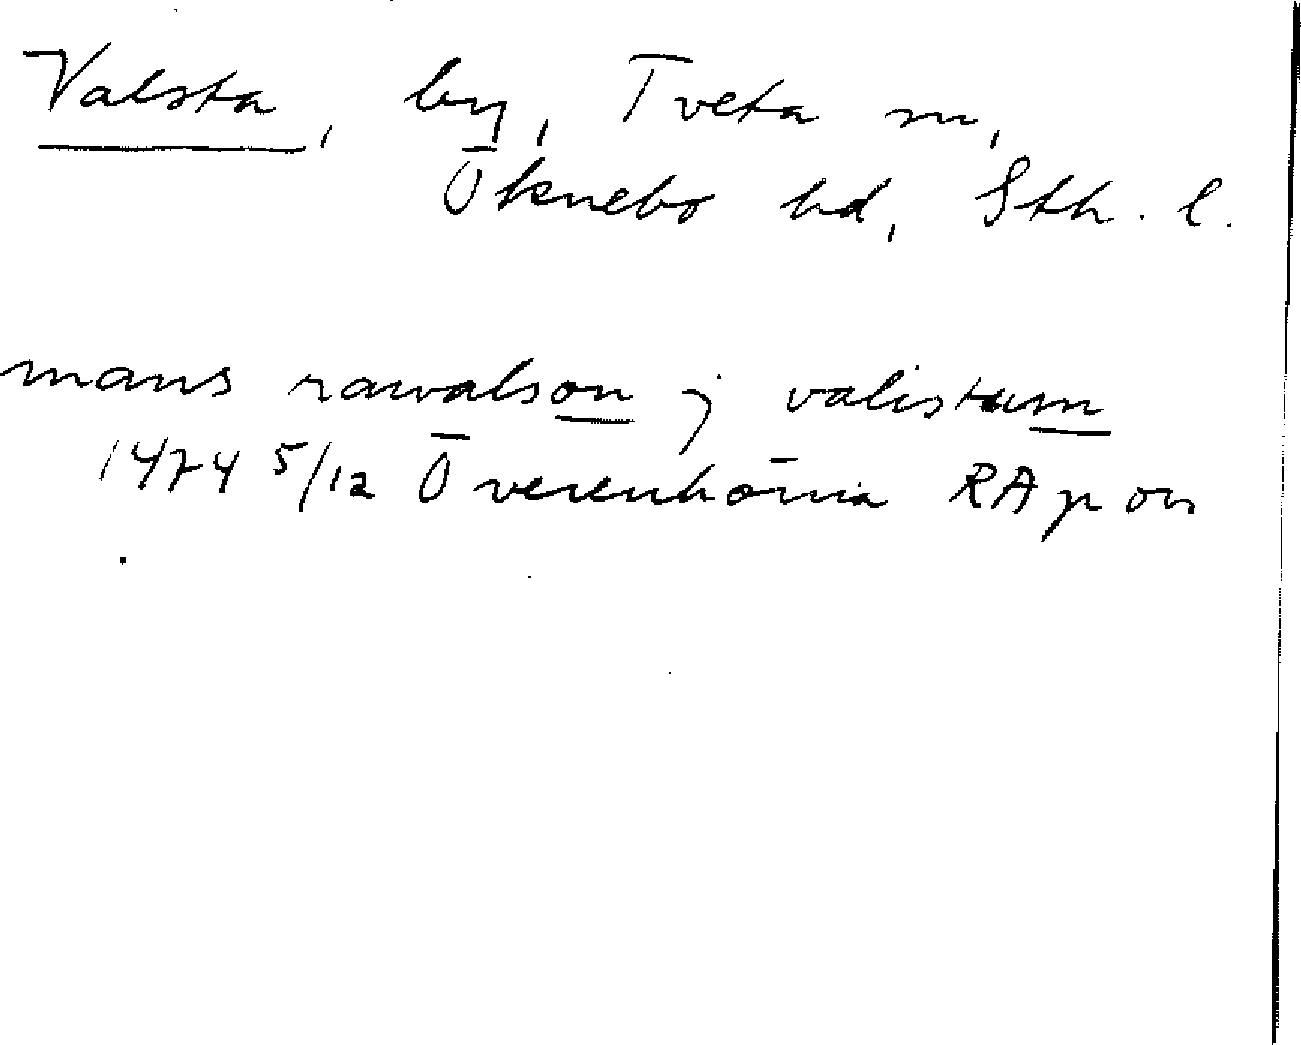 Valsta, by, Tveta sn,
Öknebo hd, Sth. l.
mans rawalson j valistum
1474 5/12 Överenhörna RA p or